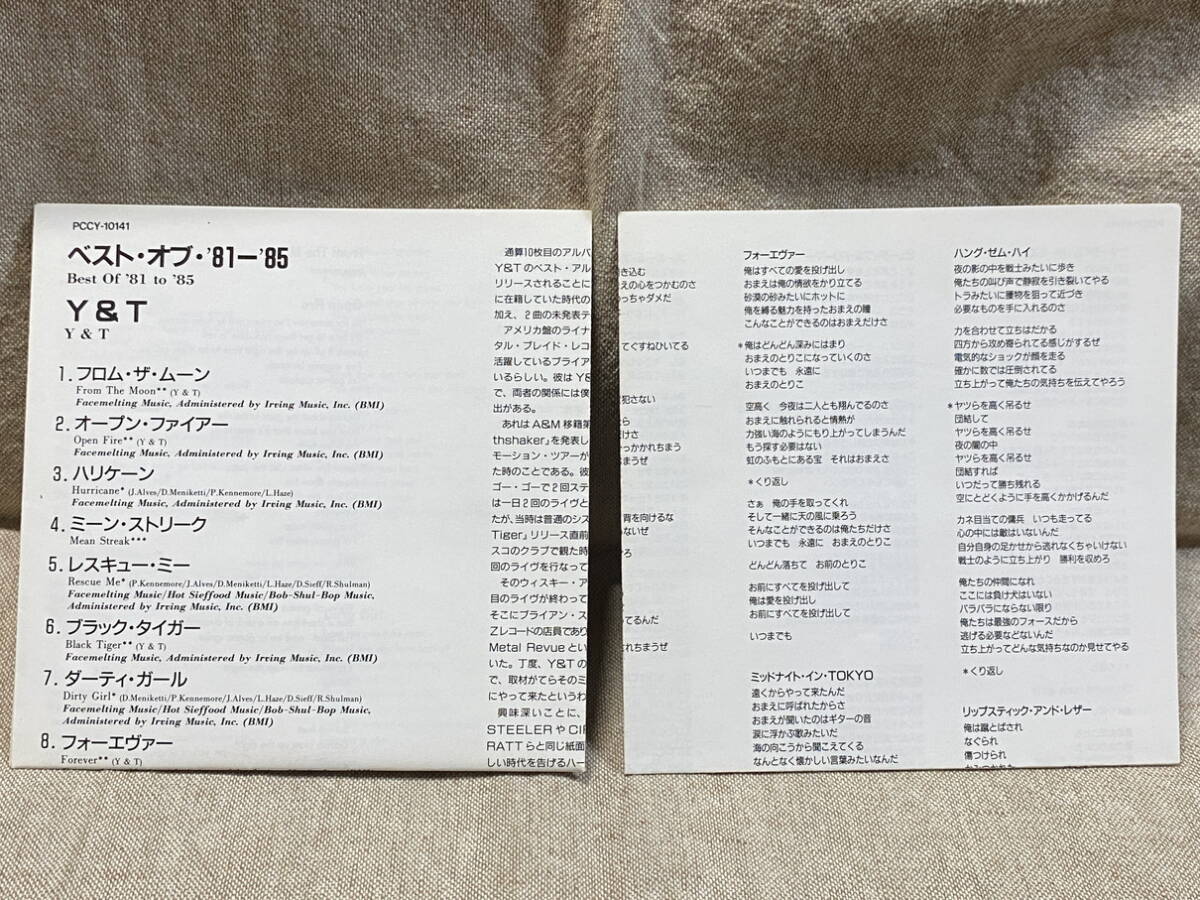 PCCY-10141
ベスト・オブ・'81ー'85
Best Of '81 to '85
Y & T
Y & T
1. フロム・ザ・ムーン
From The Moon** (Y & T)
Facemelting Music, Administered by Irving Music, Inc. (BMI)
2. オープン・ファイアー
Open Fire** (Y & T)
Facemelting Music, Administered by Irving Music, Inc. (BMI)
3. ハリケーン
Hurricane* (J.Alves/D.Meniketti/P.Kennemore/L.Haze)
Facemelting Music, Administered by Irving Music, Inc. (BMI)
4. ミーン・ストリーク
Mean Streak***
5. レスキュー・ミー
Rescue Me* (P.Kennemore/J.Alves/D.Meniketti/L.Haze/D.Sieff/R.Shulman)
Facemelting Music/Hot Sieffood Music/Bob-Shul-Bop Music,
Administered by Irving Music, Inc. (BMI)
6. ブラック・タイガー
Black Tiger** (Y & T)
Facemelting Music, Administered by Irving Music, Inc. (BMI)
7. ダーティ・ガール
Dirty Girl* (D.Meniketti/P.Kennemore/J.Alves/L.Haze/D.Sieff/R.Shulman)
Facemelting Music/Hot Sieffood Music/Bob-Shul-Bop Music,
Administered by Irving Music, Inc. (BMI)
8. フォーエヴァー
Forever** (Y & T)
通算10枚目のアルバ
Y&Tのベスト・アル
リリースされることに
に在籍していた時代の
加え、2曲の未発表テ
アメリカ盤のライナ
タル・ブレイド・レコ
活躍しているブライア
いるらしい。彼はY&
で、両者の関係には僕
出がある。
あれはA&M移籍第
thshaker」を発表し
モーション・ツアーが
た時のことである。彼
ゴー・ゴーで2回ステ
は一日2回のライヴと
たが、当時は普通のシス
Tiger」リリース直前
スコのクラブで観た時
回のライヴを行なって
そのウィスキー・ア
目のライヴが終わって
そこにブライアン・ス
Zレコードの店員であり
Metal Revueとい
いた。丁度、Y&Tの
で、取材がてらそのミ
にやって来たというわ
興味深いことに、
STEELERやCIF
RATTらと同じ紙面
しい時代を告げるハー
き込む
えの心をつかむのさ
っちゃダメだ
てぐすねひいてる
犯さない
ら
だけさ
っかかれちまう
まうぜ
背を向けるな
ないぜ
ろ
てるんだ
れちまうぜ
フォーエヴァー
俺はすべての愛を投げ出し
おまえは俺の情欲をかり立てる
砂漠の砂みたいにホットに
俺を縛る魅力を持ったおまえの瞳
こんなことができるのはおまえだけさ
*俺はどんどん深みにはまり
おまえのとりこになっていくのさ
いつまでも 永遠に
おまえのとりこ
空高く 今夜は二人とも翔んでるのさ
おまえに触れられると情熱が
力強い海のようにもり上がってしまうんだ
もう探す必要はない
虹のふもとにある宝 それはおまえさ
*くり返し
さぁ 俺の手を取ってくれ
そして一緒に天の風に乗ろう
そんなことができるのは俺たちだけさ
いつまでも 永遠に おまえのとりこ
どんどん落ちて お前のとりこ
お前にすべてを投げ出して
俺は愛を投げ出し
お前にすべてを投げ出して
いつまでも
ミッドナイト・イン・TOKYO
遠くからやって来たんだ
おまえに呼ばれたからさ
おまえが聞いたのはギターの音
涙に浮かぶ歌みたいだ
海の向こうから聞こえてくる
なんとなく懐かしい言葉みたいなんだ
ハング・ゼム・ハイ
夜の影の中を戦士みたいに歩き
俺たちの叫び声で静寂を引き裂いてやる
トラみたいに獲物を狙って近づき
必要なものを手に入れるのさ
力を合わせて立ちはだかる
四方から攻め寄られてる感じがするぜ
電気的なショックが顔を走る
確かに数では圧倒されてる
立ち上がって俺たちの気持ちを伝えてやろう
*ヤツらを高く吊るせ
団結して
ヤツらを高く吊るせ
夜の闇の中
ヤツらを高く吊るせ
団結すれば
いつだって勝ち残れる
空にとどくように手を高くかかげるんだ
カネ目当ての傭兵 いつも走ってる
心の中には敵はいないんだ
自分自身の足かせから逃れなくちゃいけない
戦士のように立ち上がり 勝利を収めろ
俺たちの仲間になれ
ここには負け犬はいない
バラバラにならない限り
俺たちは最強のフォースだから
逃げる必要などないんだ
立ち上がってどんな気持ちなのか見せてやる
*くり返し
リップスティック・アンド・レザー
俺は蹴とばされ
なぐられ
傷つけられ